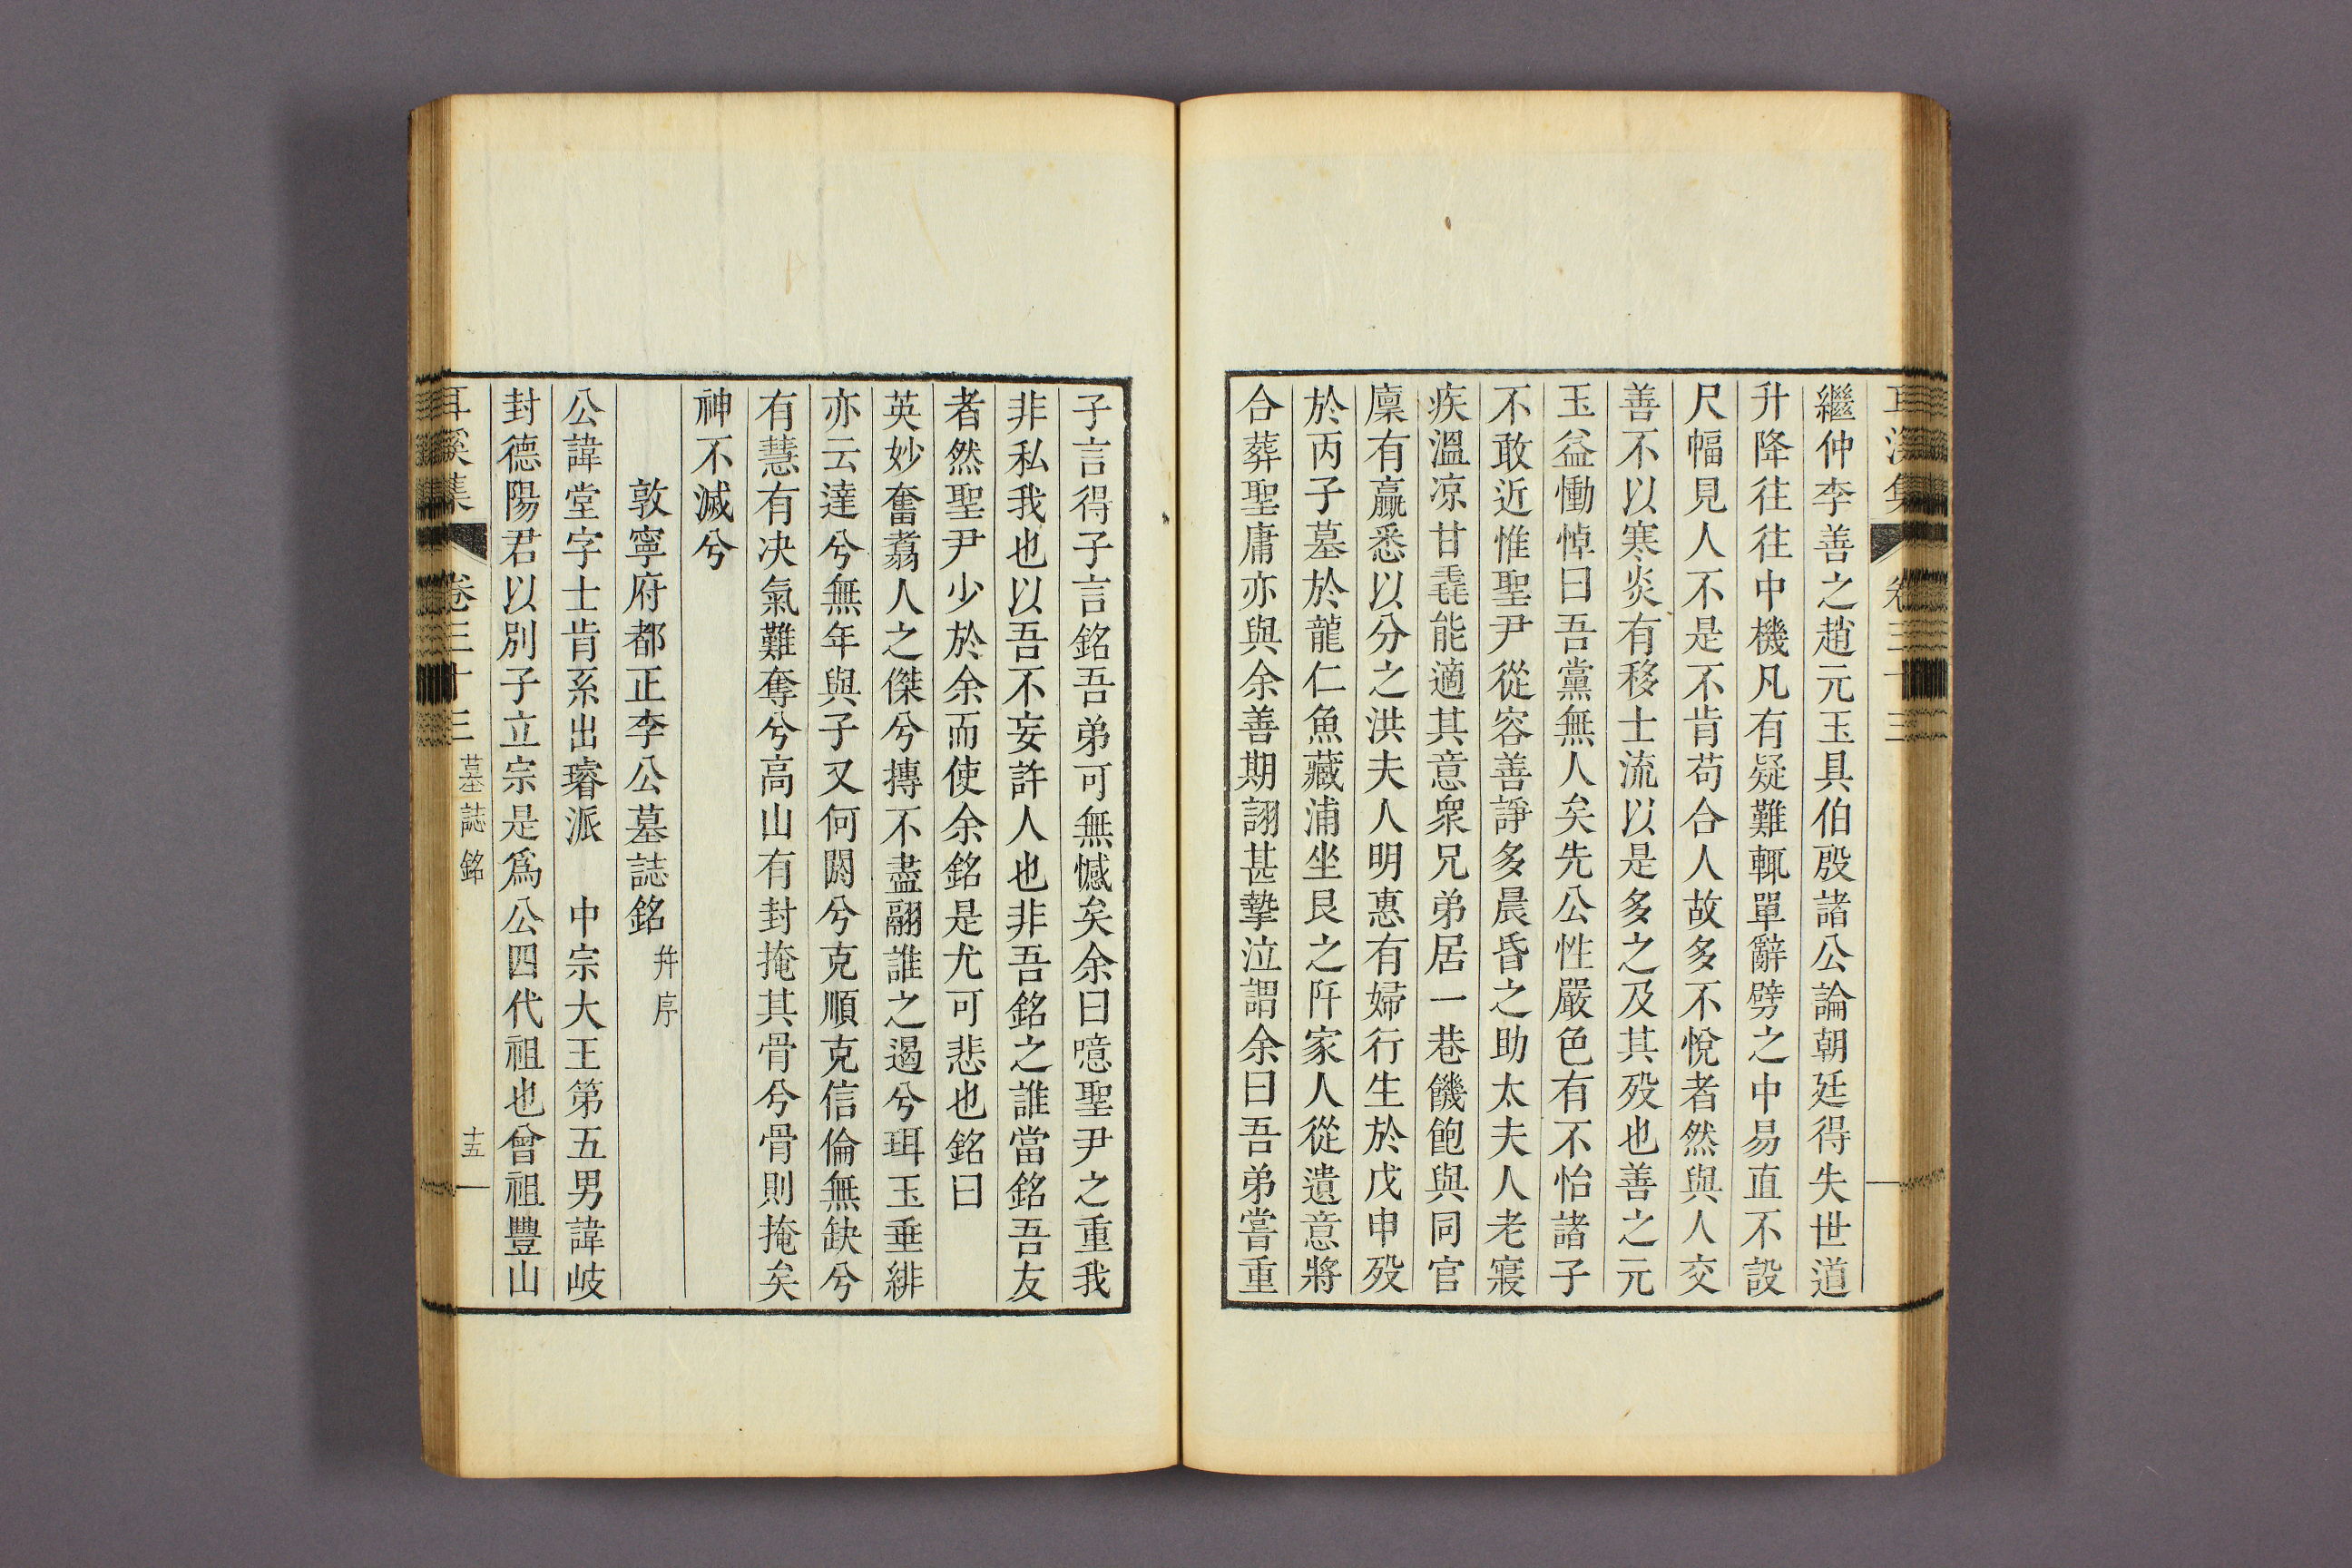 耳溪集 卷三十三
繼仲李善之趙元玉具伯殷諸公論朝廷得失世道
升降往往中機凡有疑難輒單辭劈之中易直不設
尺幅見人不是不肯苟合人故多不悅者然與人交
善不以寒炎有移士流以是多之及其歿也善之元
玉益慟悼曰吾黨無人矣先公性嚴色有不怡諸子
不敢近惟聖尹從容善諍多晨昏之助太夫人老寢
疾溫凉甘毳能適其意衆兄弟居一巷饑飽與同官
廩有贏悉以分之洪夫人明惠有婦行生於戊申歿
於丙子墓於龍仁魚藏浦坐艮之阡家人從遺意將
合葬聖庸亦與余善期詡甚摯泣謂余曰吾弟嘗重
子言得子言銘吾弟可無憾矣余曰噫聖尹之重我
非私我也以吾不妄許人也非吾銘之誰當銘吾友
者然聖尹少於余而使余銘是尤可悲也銘曰
英妙奮翥人之傑兮摶不盡翮誰之遏兮珥玉垂緋
亦云達兮無年與子又何閼兮克順克信倫無缺兮
有慧有决氣難奪兮高山有封掩其骨兮骨則掩矣
神不滅兮
敦寧府都正李公墓誌銘 幷序
公諱堂字士肯系出璿派 中宗大王第五男諱岐
封德陽君以別子立宗是爲公四代祖也曾祖豐山
耳溪集 卷三十三 墓誌銘 十五